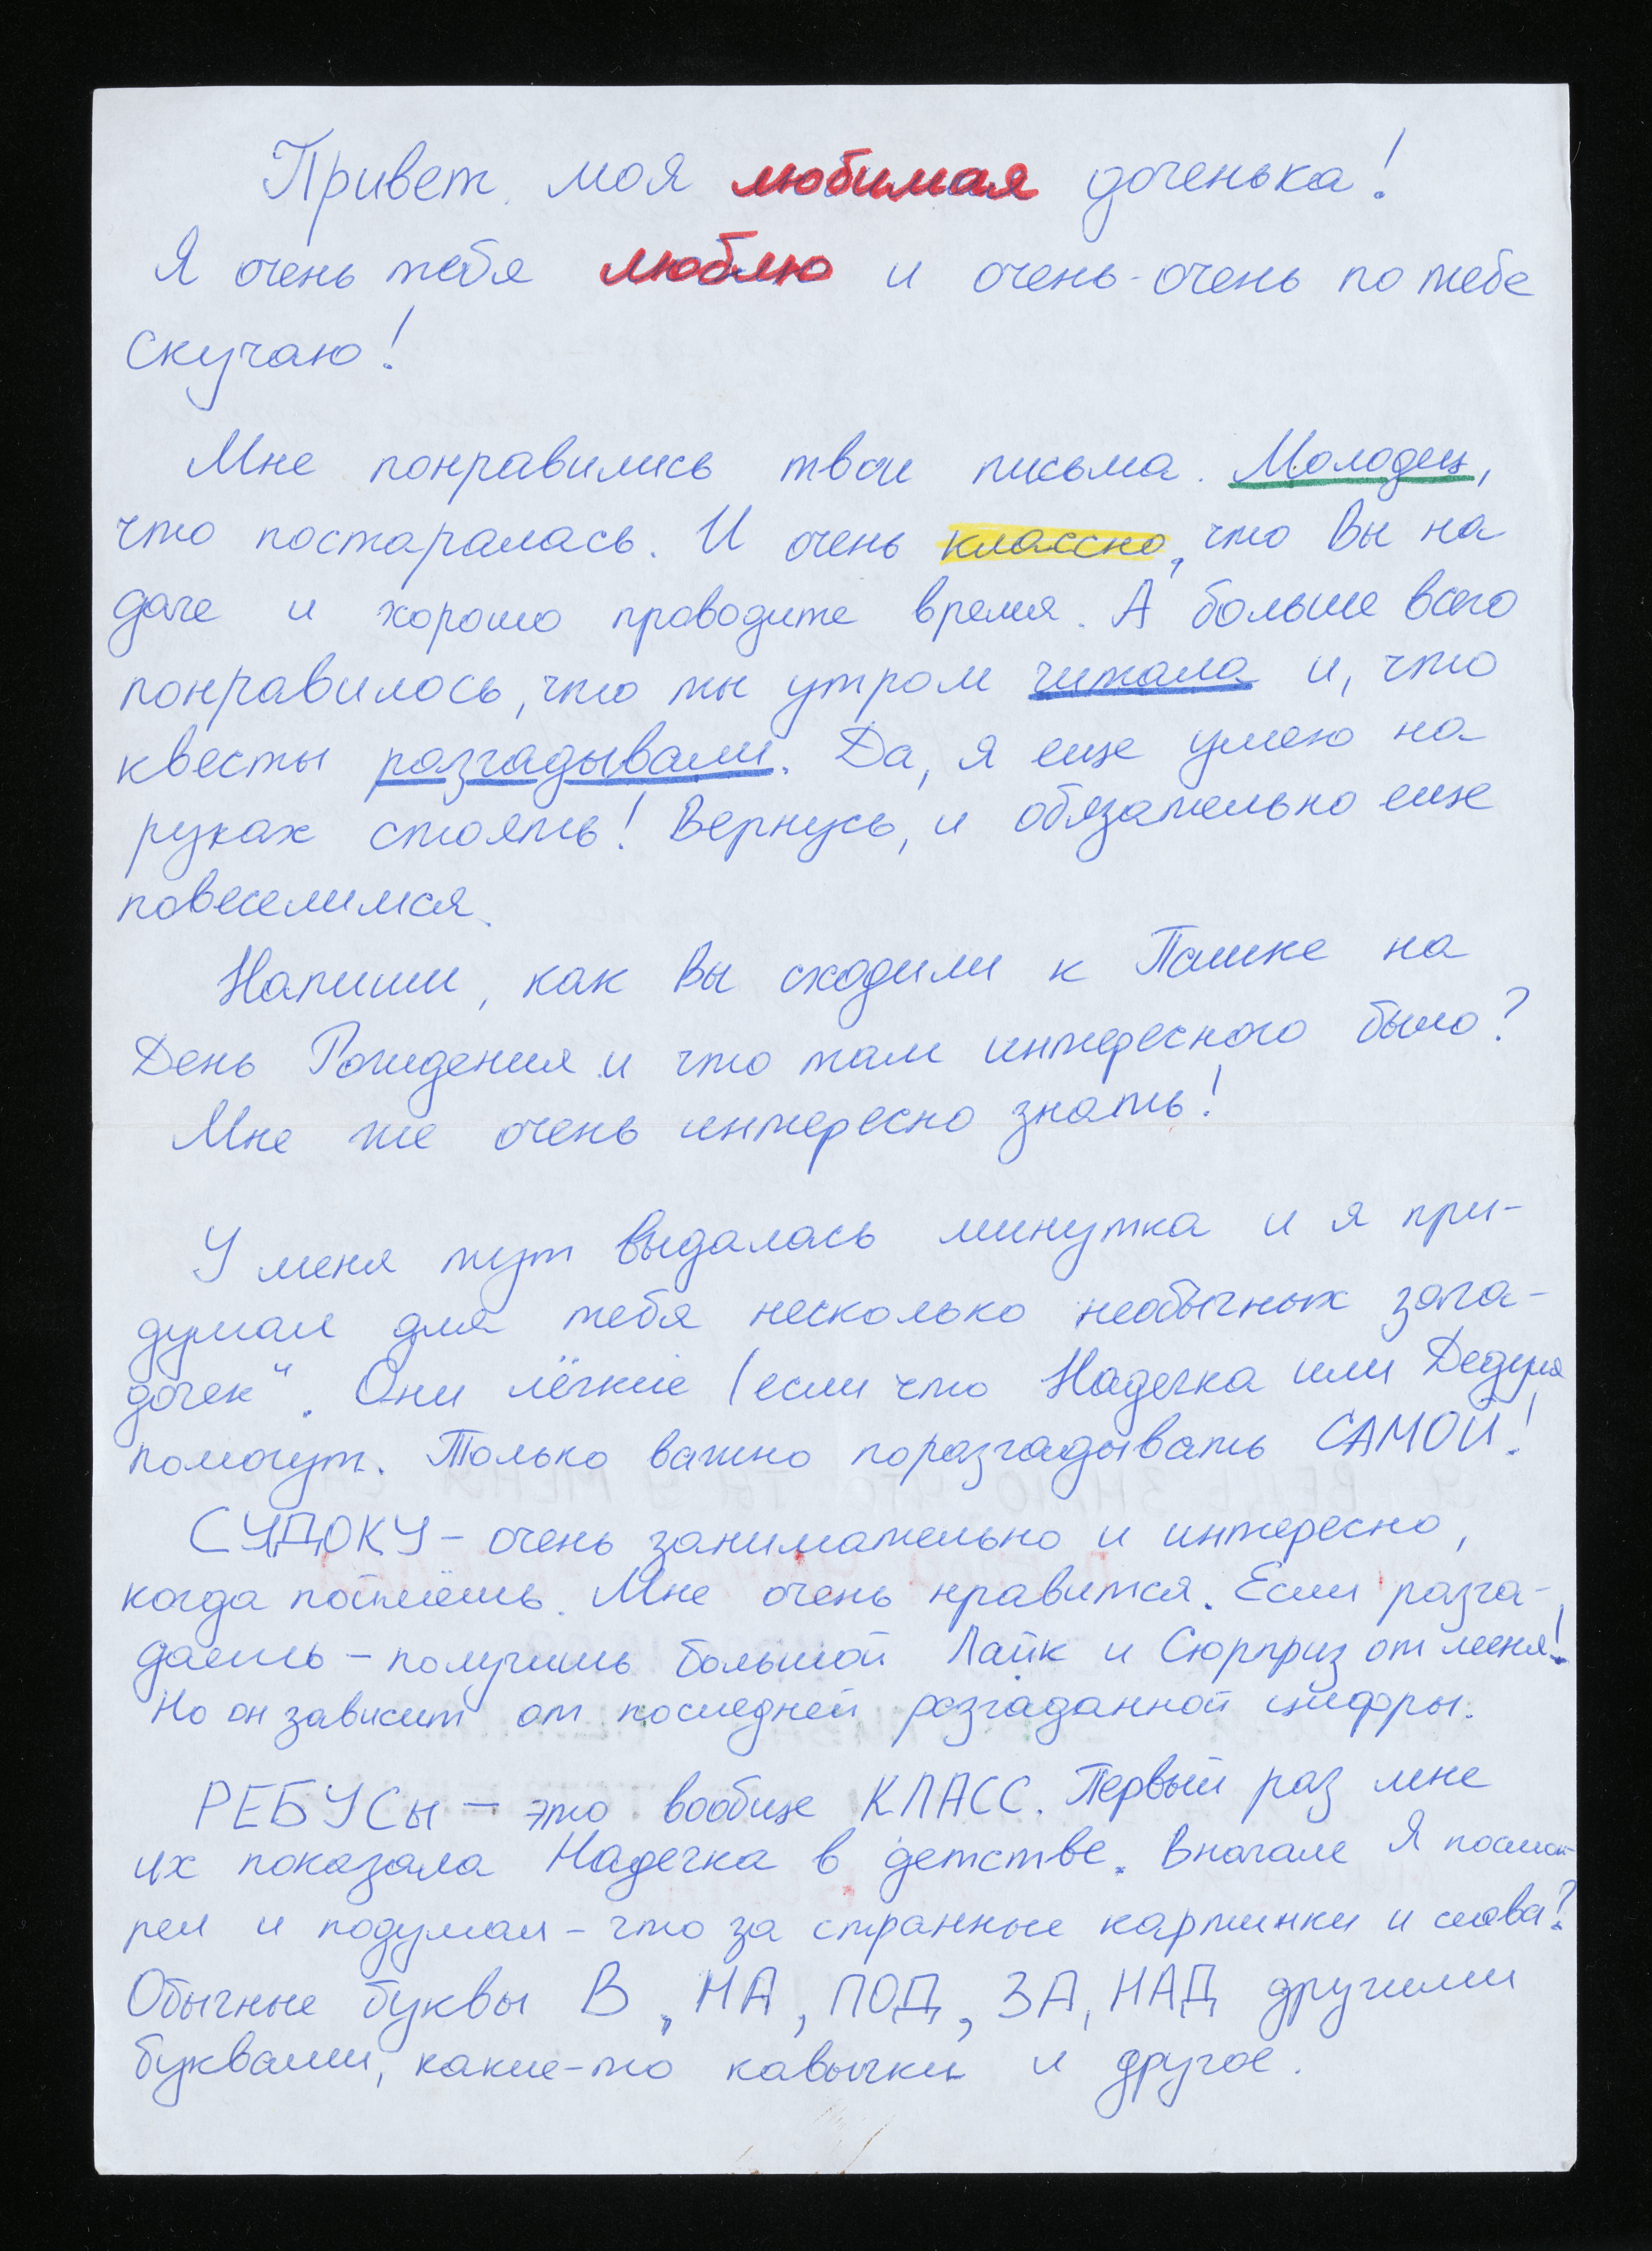 Привет моя любимая доченька!
Я очень тебя люблю и очень-очень по тебе
скучаю!
Мне понравились твои письма. Молодец,
что постаралась. И очень классно, что Вы на
даче и хорошо проводите время. А больше всего
понравилось, что ты утром читала и, что
квесты разгадывали. Да, я еще умею на
руках стоять! Вернусь, и обязательно еще
повеселимся.
Напиши, как Вы сходили к Пашке на
День Рождения и что там интересного было?
Мне же очень интересно знать!
У меня тут выдалась минутка и я при-
думал для тебя несколько необычных зага-
дочек". Они лёгкие (если что Надечка или Дедуля
помогут. Только важно поразгадывать САМОЙ!
СУДОКУ - очень занимательно и интересно,
когда поймёшь. Мне очень нравится. Если разга-
даешь - получишь большой Лайк и Сюрприз от меня!
Но он зависит от последней разгаданной цифры.
РЕБУСы - это вообще КЛАСС. Первый раз мне
их показала Надечка в детстве. Вначале Я посмот-
рел и подумал - что за странные картинки и слова?
Обычные буквы В, НА, ПОД, ЗА, НАД другими
буквами, какие-то кавычки и другое.